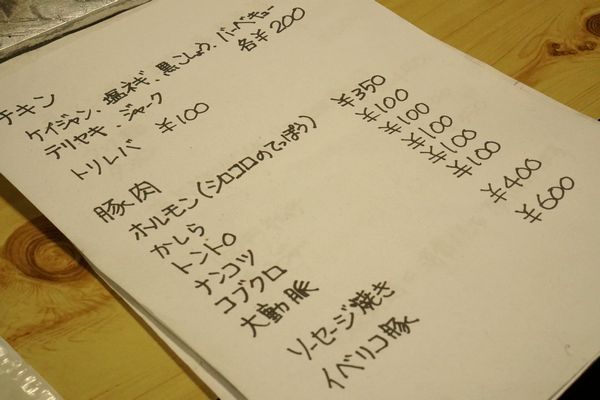 チキン
ケイジャン、塩ネギ、黒こしょう、バーベキュー
テリヤキ、ジャーク 各¥200
トリレバ ¥100
豚肉
ホルモン(シロコロのてっぽう) ¥350
かしら ¥100
トントロ ¥100
ナンコツ ¥100
コブクロ ¥100
大動脈 ¥100
ソーセージ焼き ¥400
イベリコ豚 ¥600